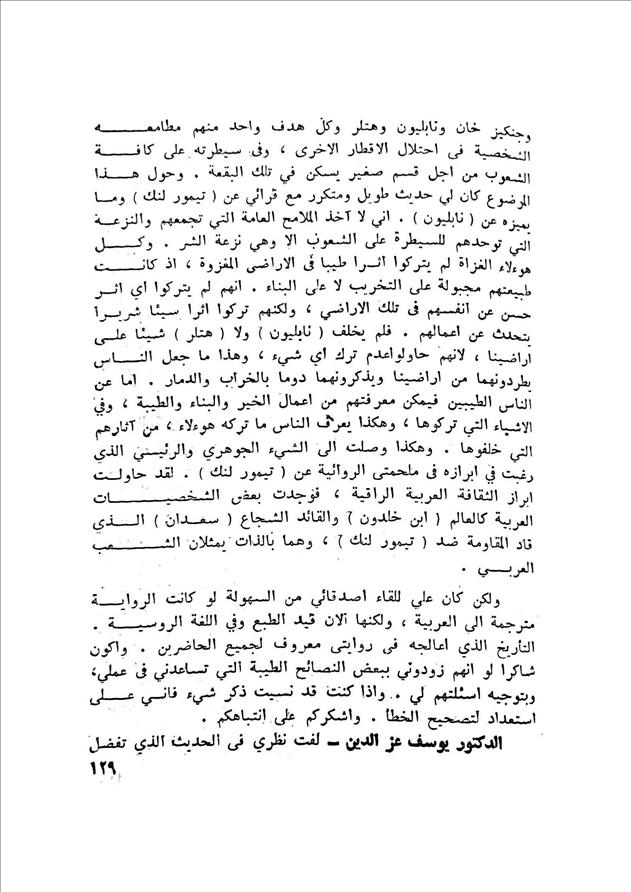 وجنكيز خان ونابليون وهتلر وكل هدف واحد منهم مطامعـــــه
الشخصية فى احتلال الاقطار الاخرى ، وفى سيطرته على كافـــة
الشعوب من اجل قسم صغير يسكن في تلك البقعة . وحول هـــذا
الموضوع كان لي حديث طويل ومتكرر مع قرائي عن ( تيمور لنك ) ومـا
يميزه عن ( نابليون ) . اني لا آخذ الملامح العامة التي تجمعهم والنزعـة
التي توحدهم للسيطرة على الشعوب الا وهي نزعة الشر . وكـــل
هوءلاء الغزاة لم يتركوا اثـرا طيبا فى الاراضى المغزوة ، اذ كانـــت
طبيعتهم مجبولة على التخريب لا على البناء . انهم لم يتركوا اي اثـر
حسن عن انفسهم فى تلك الاراضي ، ولكنهم تركوا اثرا سيئا شريرا
يتحدث عن اعمالهم . فلم يخلف ( نابليون ) ولا ( هتلر ) شيئا علـى
اراضينا ، لانهم حاولواعدم ترك اي شيء ، وهذا ما جعل النـــاس
يطردونهما من اراضينا ويذكرونهما دوما بالخراب والدمار . اما عن
الناس الطيبين فيمكن معرفتهم من اعمال الخير والبناء والطيبة ، وفي
الاشياء التي تركوها ، وهكذا يعرف الناس ما تركه هوءلاء ، من آثارهم
التي خلفوها . وهكذا وصلت الى الشيء الجوهري والرئيسي الذي
رغبت في ابرازه فى ملحمتى الروائية عن ( تيمور لنك ) . لقد حاولـت
ابراز الثقافة العربية الراقية ، فوجدت بعض الشخصيـــــات
العربية كالعالم ( ابن خلدون ) والقائد الشجاع ( سعـدان ) الـــذي
قاد المقاومة ضد ( تيمور لنك ) ، وهما بالذات يمثلان الشـــعب
العربـــي .
ولكن كان علي للقاء اصدقائي من السهولة لو كانت الروايـــة
مترجمة الى العربية ، ولكنها آلان قيد الطبع وفي اللغة الروسيـــة .
التأريخ الذي اعالجه فى روايتى معروف لجميع الحاضرين . واكون
شاكرا لو انهم زودوني ببعض النصائح الطيبة التي تساعدني فى عملي،
وبتوجيه اسئلتهم لي . واذا كنت قد نسيت ذكر شيء فانـي علـــى
استعداد لتصحيح الخطأ . واشكركم على انتباهكم .
الدكتور يوسف عز الدين ــ لفت نظري فى الحديث الذي تفضل
١٢٩